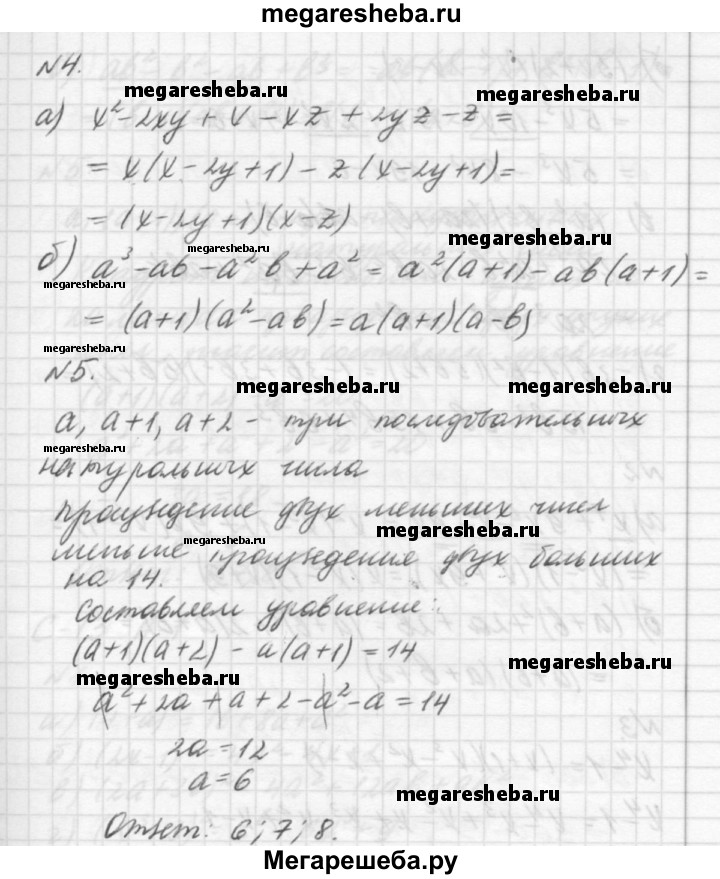 megaresheba.ru
№4.
megaresheba.ru megaresheba.ru
а) x² - 2xy + x - xz + 2yz - z =
= x(x - 2y + 1) - z(x - 2y + 1) =
= (x - 2y + 1)(x - z)
megaresheba.ru megaresheba.ru
б) a³ - ab - a²b + a² = a²(a+1) - ab(a+1) =
megaresheba.ru
= (a+1)(a² - ab) = a(a+1)(a-b)
megaresheba.ru
№5.
megaresheba.ru megaresheba.ru
a, a+1, a+2 - три последовательных
megaresheba.ru
натуральных числа
произведение двух меньших чисел
megaresheba.ru
меньше произведения двух больших
megaresheba.ru
на 14.
Составляем уравнение:
(a+1)(a+2) - a(a+1) = 14
megaresheba.ru
megaresheba.ru
a² + 2a + a + 2 - a² - a = 14
2a = 12
a = 6
megaresheba.ru
Ответ: 6; 7; 8.
Мегарешеба.ру